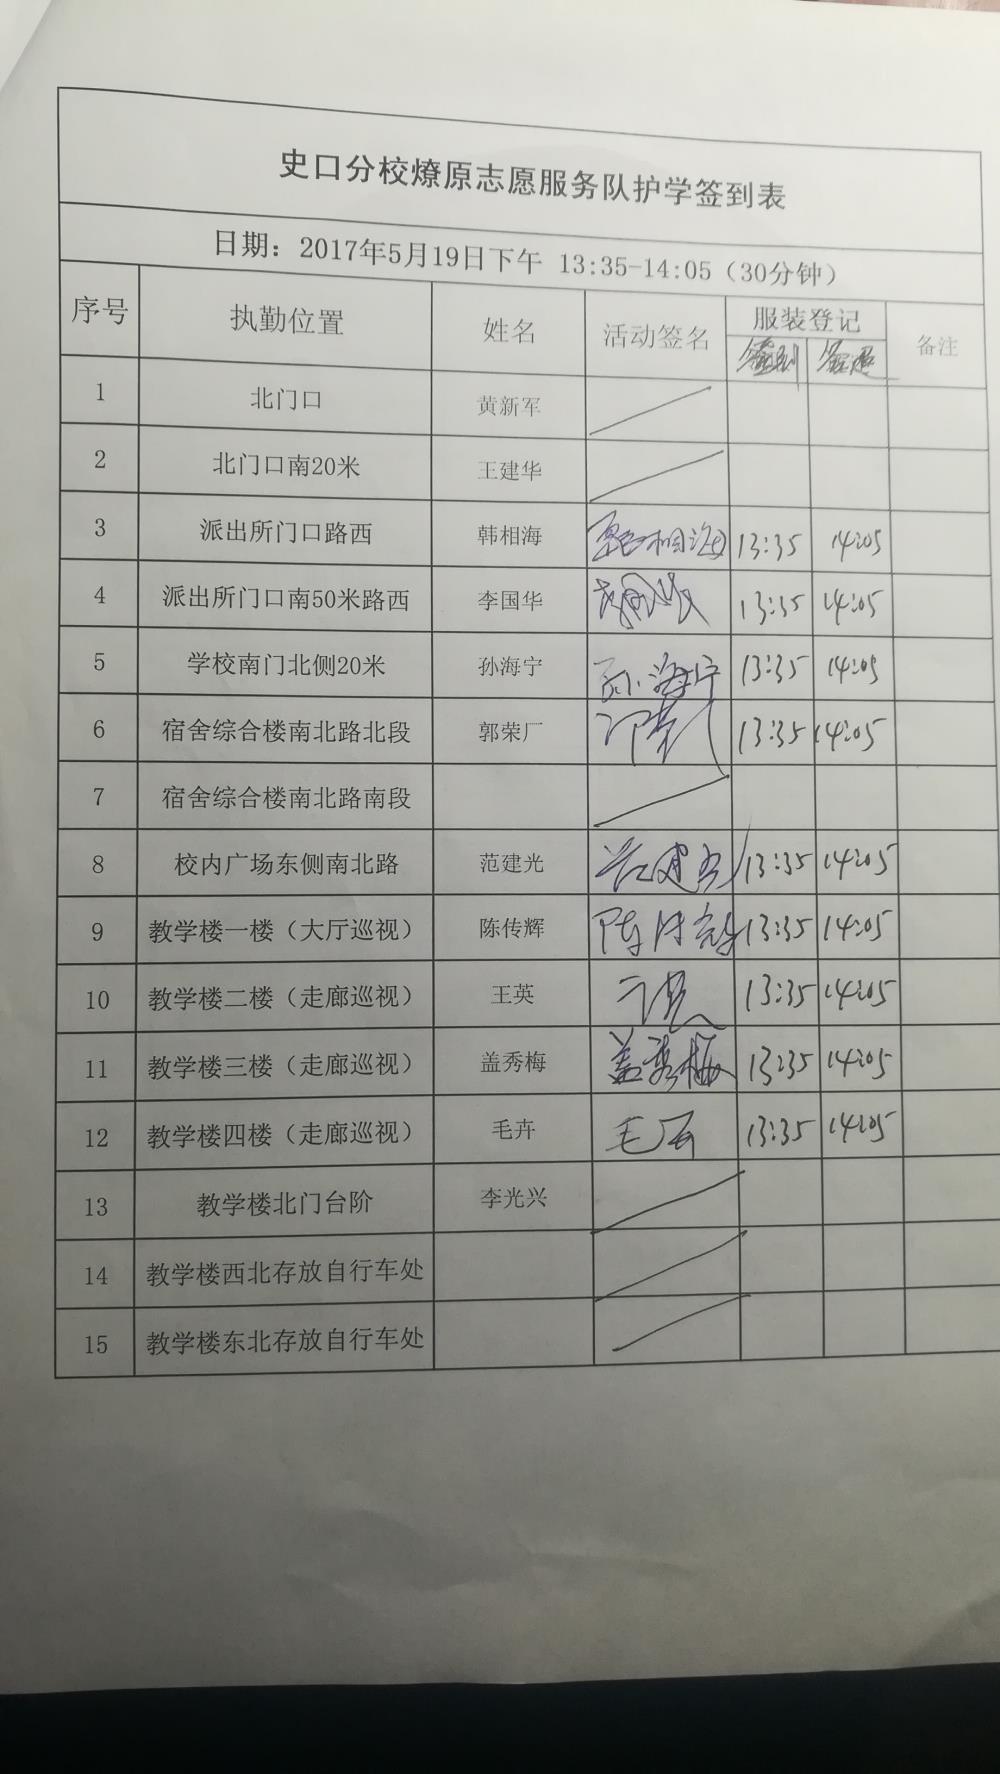 史口分校燎原志愿服务队护学签到表
日期：2017年5月19日下午 13:35-14:05（30分钟）
序号 执勤位置 姓名 活动签名 服装登记 备注
签到 签退
1 北门口 黄新军
2 北门口南20米 王建华
3 派出所门口路西 韩相海 韩相海 13:35 14:05
4 派出所门口南50米路西 李国华 13:35 14:05
5 学校南门北侧20米 孙海宁 孙海宁 13:35 14:05
6 宿舍综合楼南北路北段 郭荣厂 郭荣厂 13:35 14:05
7 宿舍综合楼南北路南段
8 校内广场东侧南北路 范建光 范建光 13:35 14:05
9 教学楼一楼（大厅巡视） 陈传辉 陈传辉 13:35 14:05
10 教学楼二楼（走廊巡视） 王英 13:35 14:05
11 教学楼三楼（走廊巡视） 盖秀梅 盖秀梅 13:35 14:05
12 教学楼四楼（走廊巡视） 毛卉 毛卉 13:35 14:05
13 教学楼北门台阶 李光兴
14 教学楼西北存放自行车处
15 教学楼东北存放自行车处